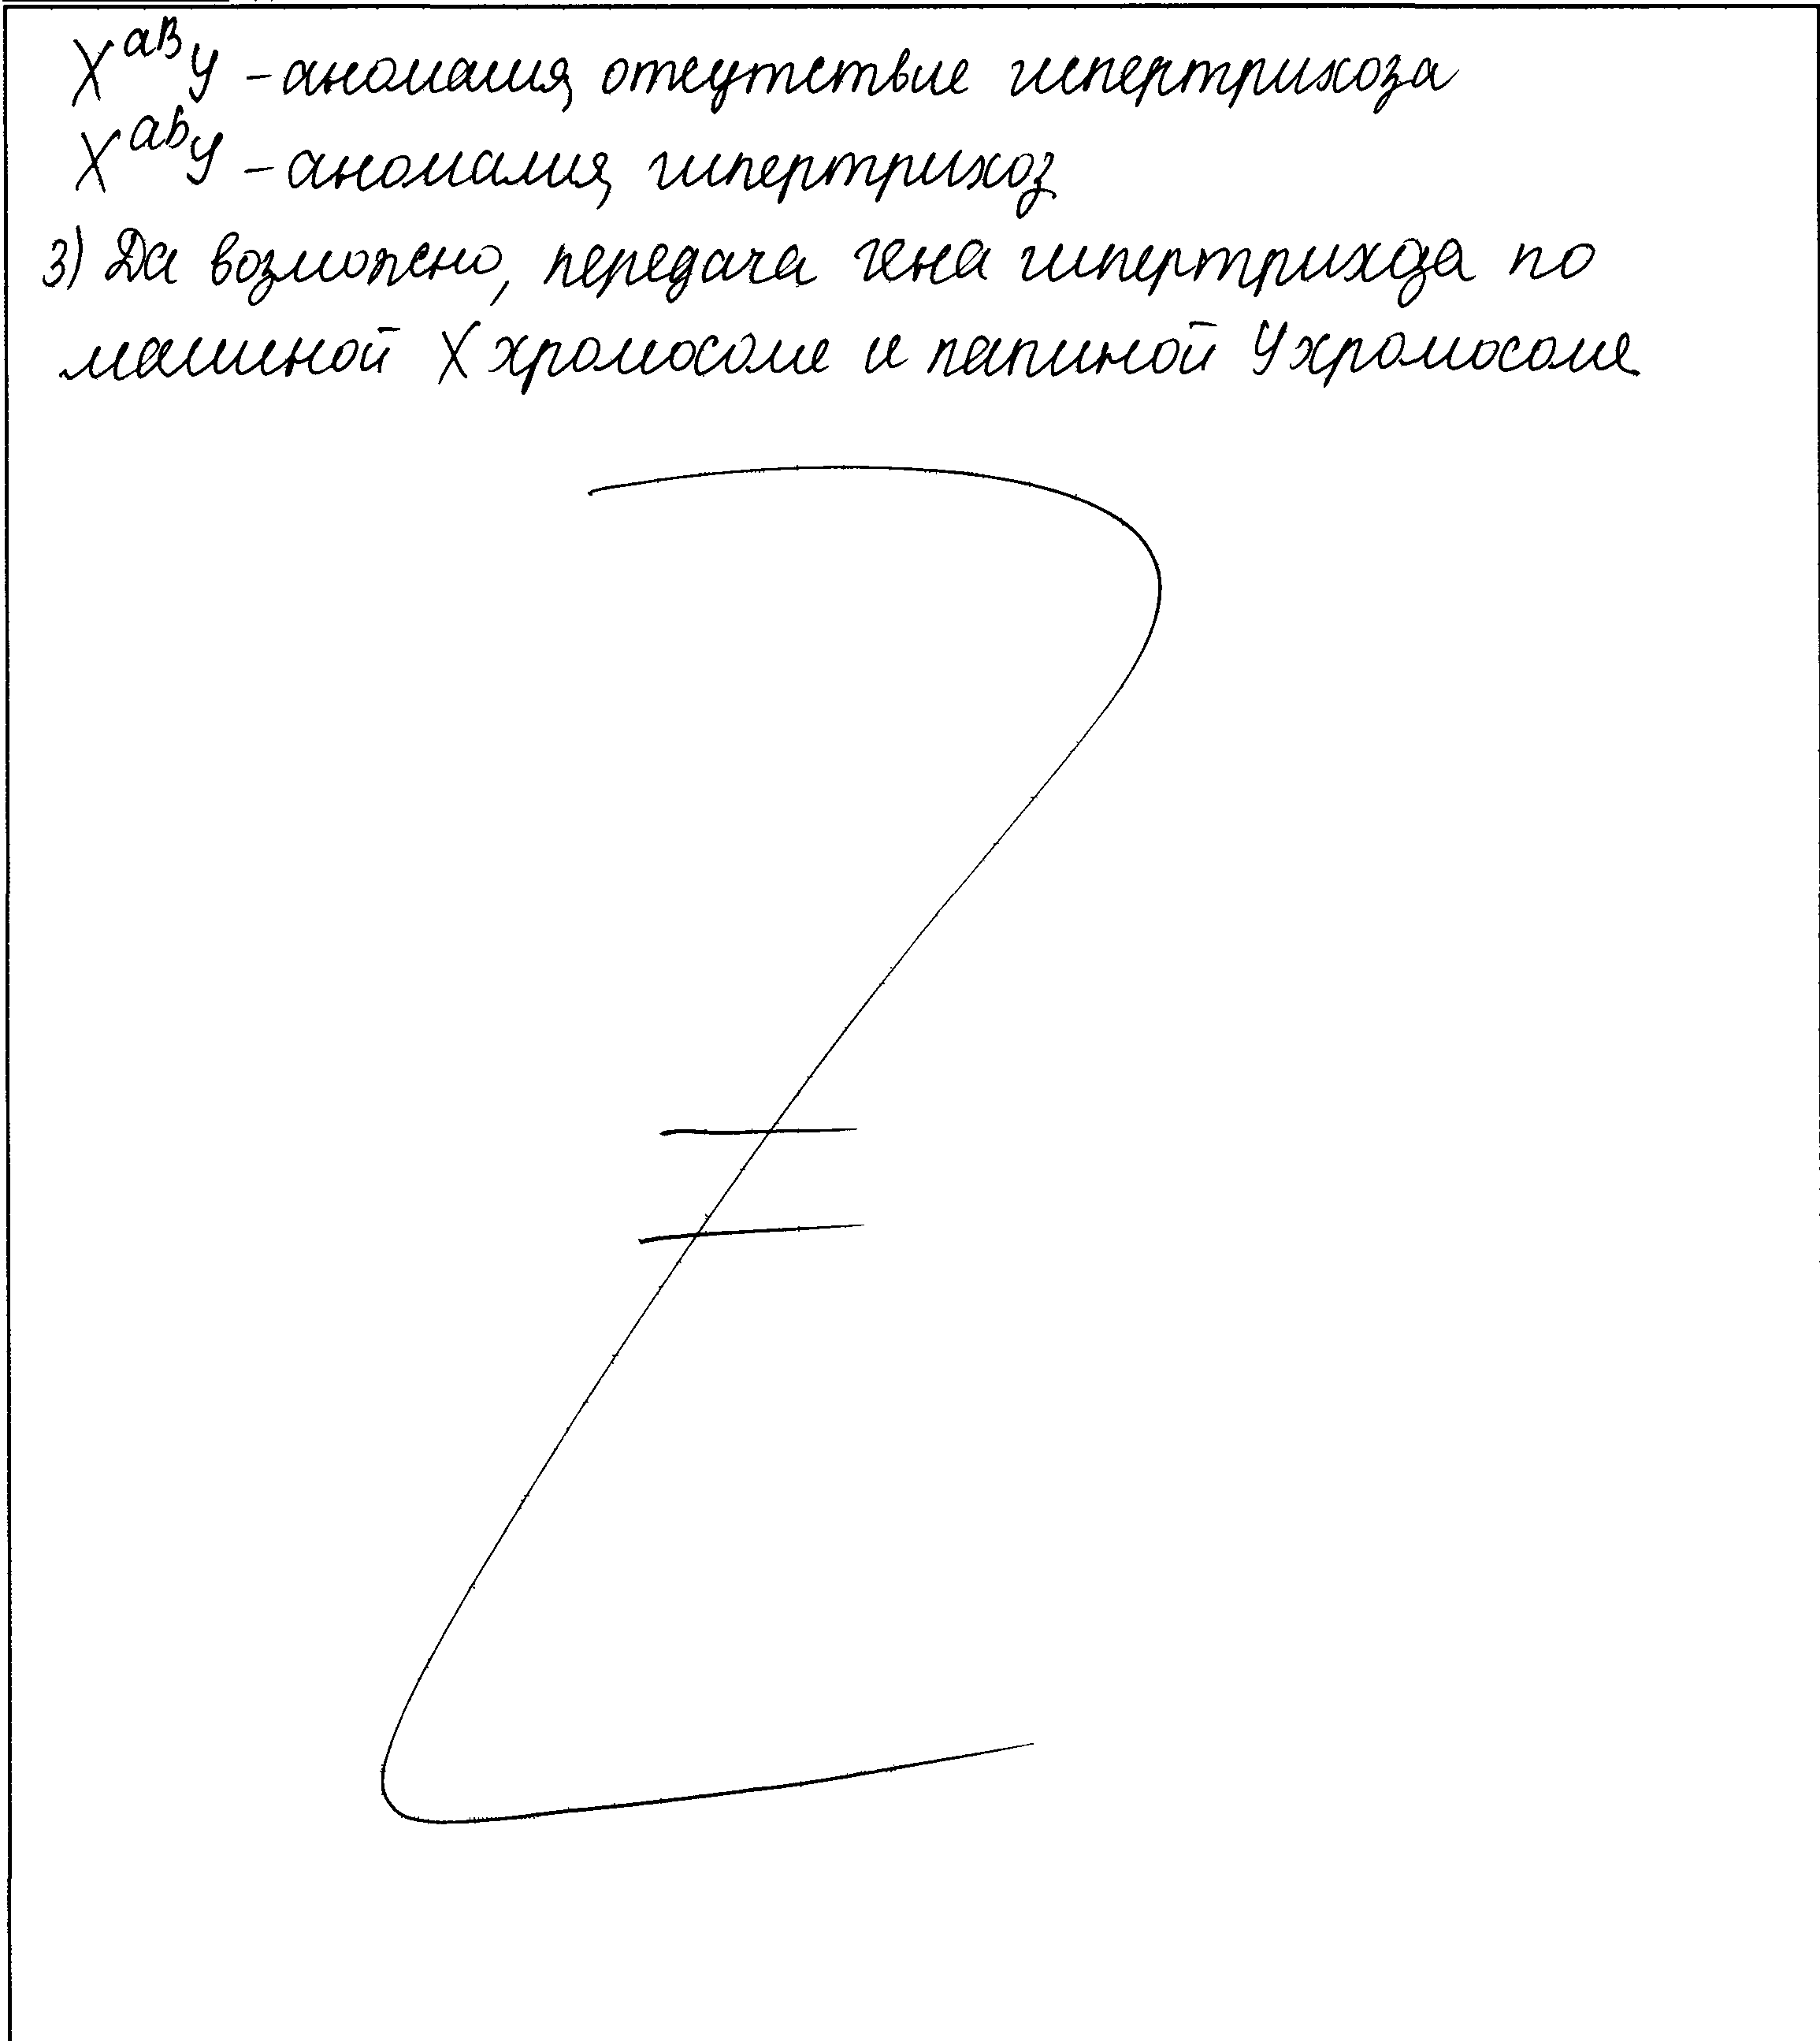 X^aB y – аномалия, отсутствие гипертрихоза
X^ab y – аномалия, гипертрихоз
3) Да возможно, передача гена гипертрихоза по
машиной X хромосоме и папиной У хромосоме